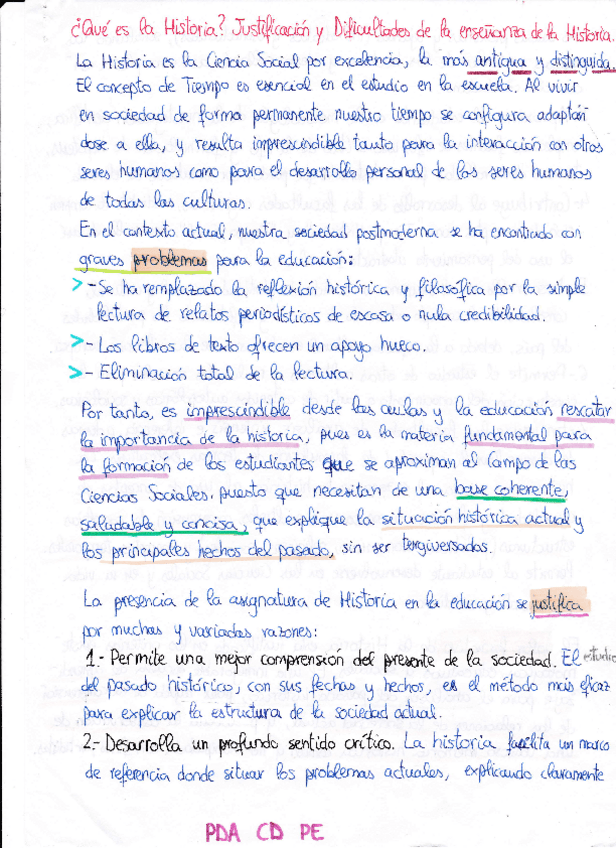 ¿Qué es la Historia? Justificación y Dificultades de la enseñanza de la Historia.
La Historia es la Ciencia Social por excelencia, la más antigua y distinguida.
El concepto de Tiempo es esencial en el estudio en la escuela. Al vivir
en sociedad de forma permanente nuestro tiempo se configura adaptán-
dose a ella, y resulta imprescindible tanto para la interacción con otros
seres humanos como para el desarrollo personal de los seres humanos
de todas las culturas.
En el contexto actual, nuestra sociedad postmoderna se ha encontrado con
graves problemas para la educación:
> - Se ha remplazado la reflexión histórica y filosófica por la simple
lectura de relatos periodísticos de escasa o nula credibilidad.
> - Los libros de texto ofrecen un apoyo hueco.
> - Eliminación total de la lectura.
Por tanto, es imprescindible desde las aulas y la educación rescatar
la importancia de la historia, pues es la materia fundamental para
la formación de los estudiantes que se aproximan al Campo de las
Ciencias Sociales, puesto que necesitan de una base coherente,
saludable y concisa, que explique la situación histórica actual y
los principales hechos del pasado, sin ser tergiversados.
La presencia de la asignatura de Historia en la educación se justifica
por muchas y variadas razones:
1.- Permite una mejor comprensión del presente de la sociedad. El estudio
del pasado histórico, con sus fechas y hechos, es el método más eficaz
para explicar la estructura de la sociedad actual.
2.- Desarrolla un profundo sentido crítico. La historia facilita un marco
de referencia donde situar los problemas actuales, explicando claramente
PDA CD PE